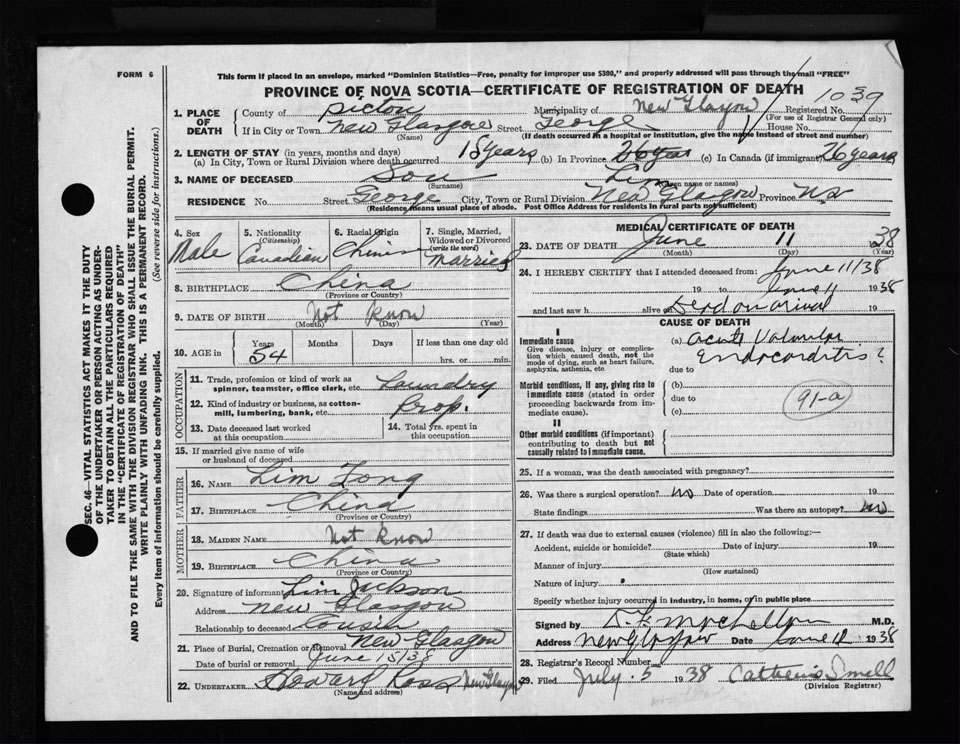 FORM 6
This form if placed in an envelope, marked "Dominion Statistics—Free, penalty for improper use $300," and properly addressed will pass through the mail "FREE"
PROVINCE OF NOVA SCOTIA—CERTIFICATE OF REGISTRATION OF DEATH
1. PLACE OF DEATH
County of Pictou Municipality of New Glasgow Registered No. 1039
(For use of Registrar General only)
If in City or Town New Glasgow Street George House No.
(Name) (If death occurred in a hospital or institution, give the name instead of street and number)
2. LENGTH OF STAY (in years, months and days)
(a) In City, Town or Rural Division where death occurred 15 years (b) In Province 26 years (c) In Canada (if immigrant) 26 years
3. NAME OF DECEASED Sou Lim
(Surname) (Given name or names)
RESIDENCE No. Street George City, Town or Rural Division New Glasgow Province N.S
(Residence means usual place of abode. Post Office Address for residents in rural parts not sufficient)
4. Sex Male
5. Nationality (Citizenship) Canadian
6. Racial Origin Chinese
7. Single, Married, Widowed or Divorced (write the word) Married
8. BIRTHPLACE China
(Province or Country)
9. DATE OF BIRTH Not know
(Month) (Day) (Year)
10. AGE in Years 54 Months Days If less than one day old
hrs. or min.
OCCUPATION
11. Trade, profession or kind of work as spinner, teamster, office clerk, etc. Laundry
12. Kind of industry or business, as cotton-mill, lumbering, bank, etc. Prop.
13. Date deceased last worked at this occupation
14. Total yrs. spent in this occupation
15. If married give name of wife or husband of deceased
FATHER
16. NAME Lim Fong
17. BIRTHPLACE China
(Province or Country)
MOTHER
18. MAIDEN NAME Not know
19. BIRTHPLACE China
(Province or Country)
20. Signature of informant Lim Jackson
Address New Glasgow
Relationship to deceased Cousin
21. Place of Burial, Cremation or Removal New Glasgow
Date of burial or removal June 15/38
22. UNDERTAKER Howard Ross New Glasgow
(Name and address)
MEDICAL CERTIFICATE OF DEATH
23. DATE OF DEATH June 11 38
(Month) (Day) (Year)
24. I HEREBY CERTIFY that I attended deceased from: June 11/38
19 to June 11 1938
and last saw h alive on Dead on arrival
CAUSE OF DEATH
I
Immediate cause
Give disease, injury or complication which caused death, not the mode of dying, such as heart failure, asphyxia, asthenia, etc.
(a) Acute Valvular
Endocarditis?
due to
Morbid conditions, if any, giving rise to immediate cause (stated in order proceeding backwards from immediate cause).
(b)
due to
(c)
91-a
II
Other morbid conditions (if important) contributing to death but not causally related to immediate cause.
25. If a woman, was the death associated with pregnancy?
26. Was there a surgical operation? no Date of operation 19
State findings Was there an autopsy? no
27. If death was due to external causes (violence) fill in also the following:—
Accident, suicide or homicide? Date of injury 19
(State which)
Manner of injury
(How sustained)
Nature of injury
Specify whether injury occurred in industry, in home, or in public place
Signed by M.D.
Address New Glasgow Date June 12 1938
28. Registrar's Record Number
29. Filed July 5 1938 Catherine Smell
(Division Registrar)
SEC. 46—VITAL STATISTICS ACT MAKES IT THE DUTY
OF THE UNDERTAKER OR PERSON ACTING AS UNDER-
TAKER TO OBTAIN ALL THE PARTICULARS REQUIRED
IN THE "CERTIFICATE OF REGISTRATION OF DEATH"
AND TO FILE THE SAME WITH THE DIVISION REGISTRAR WHO SHALL ISSUE THE BURIAL PERMIT.
WRITE PLAINLY WITH UNFADING INK. THIS IS A PERMANENT RECORD.
Every item of information should be carefully supplied. (See reverse side for instructions.)